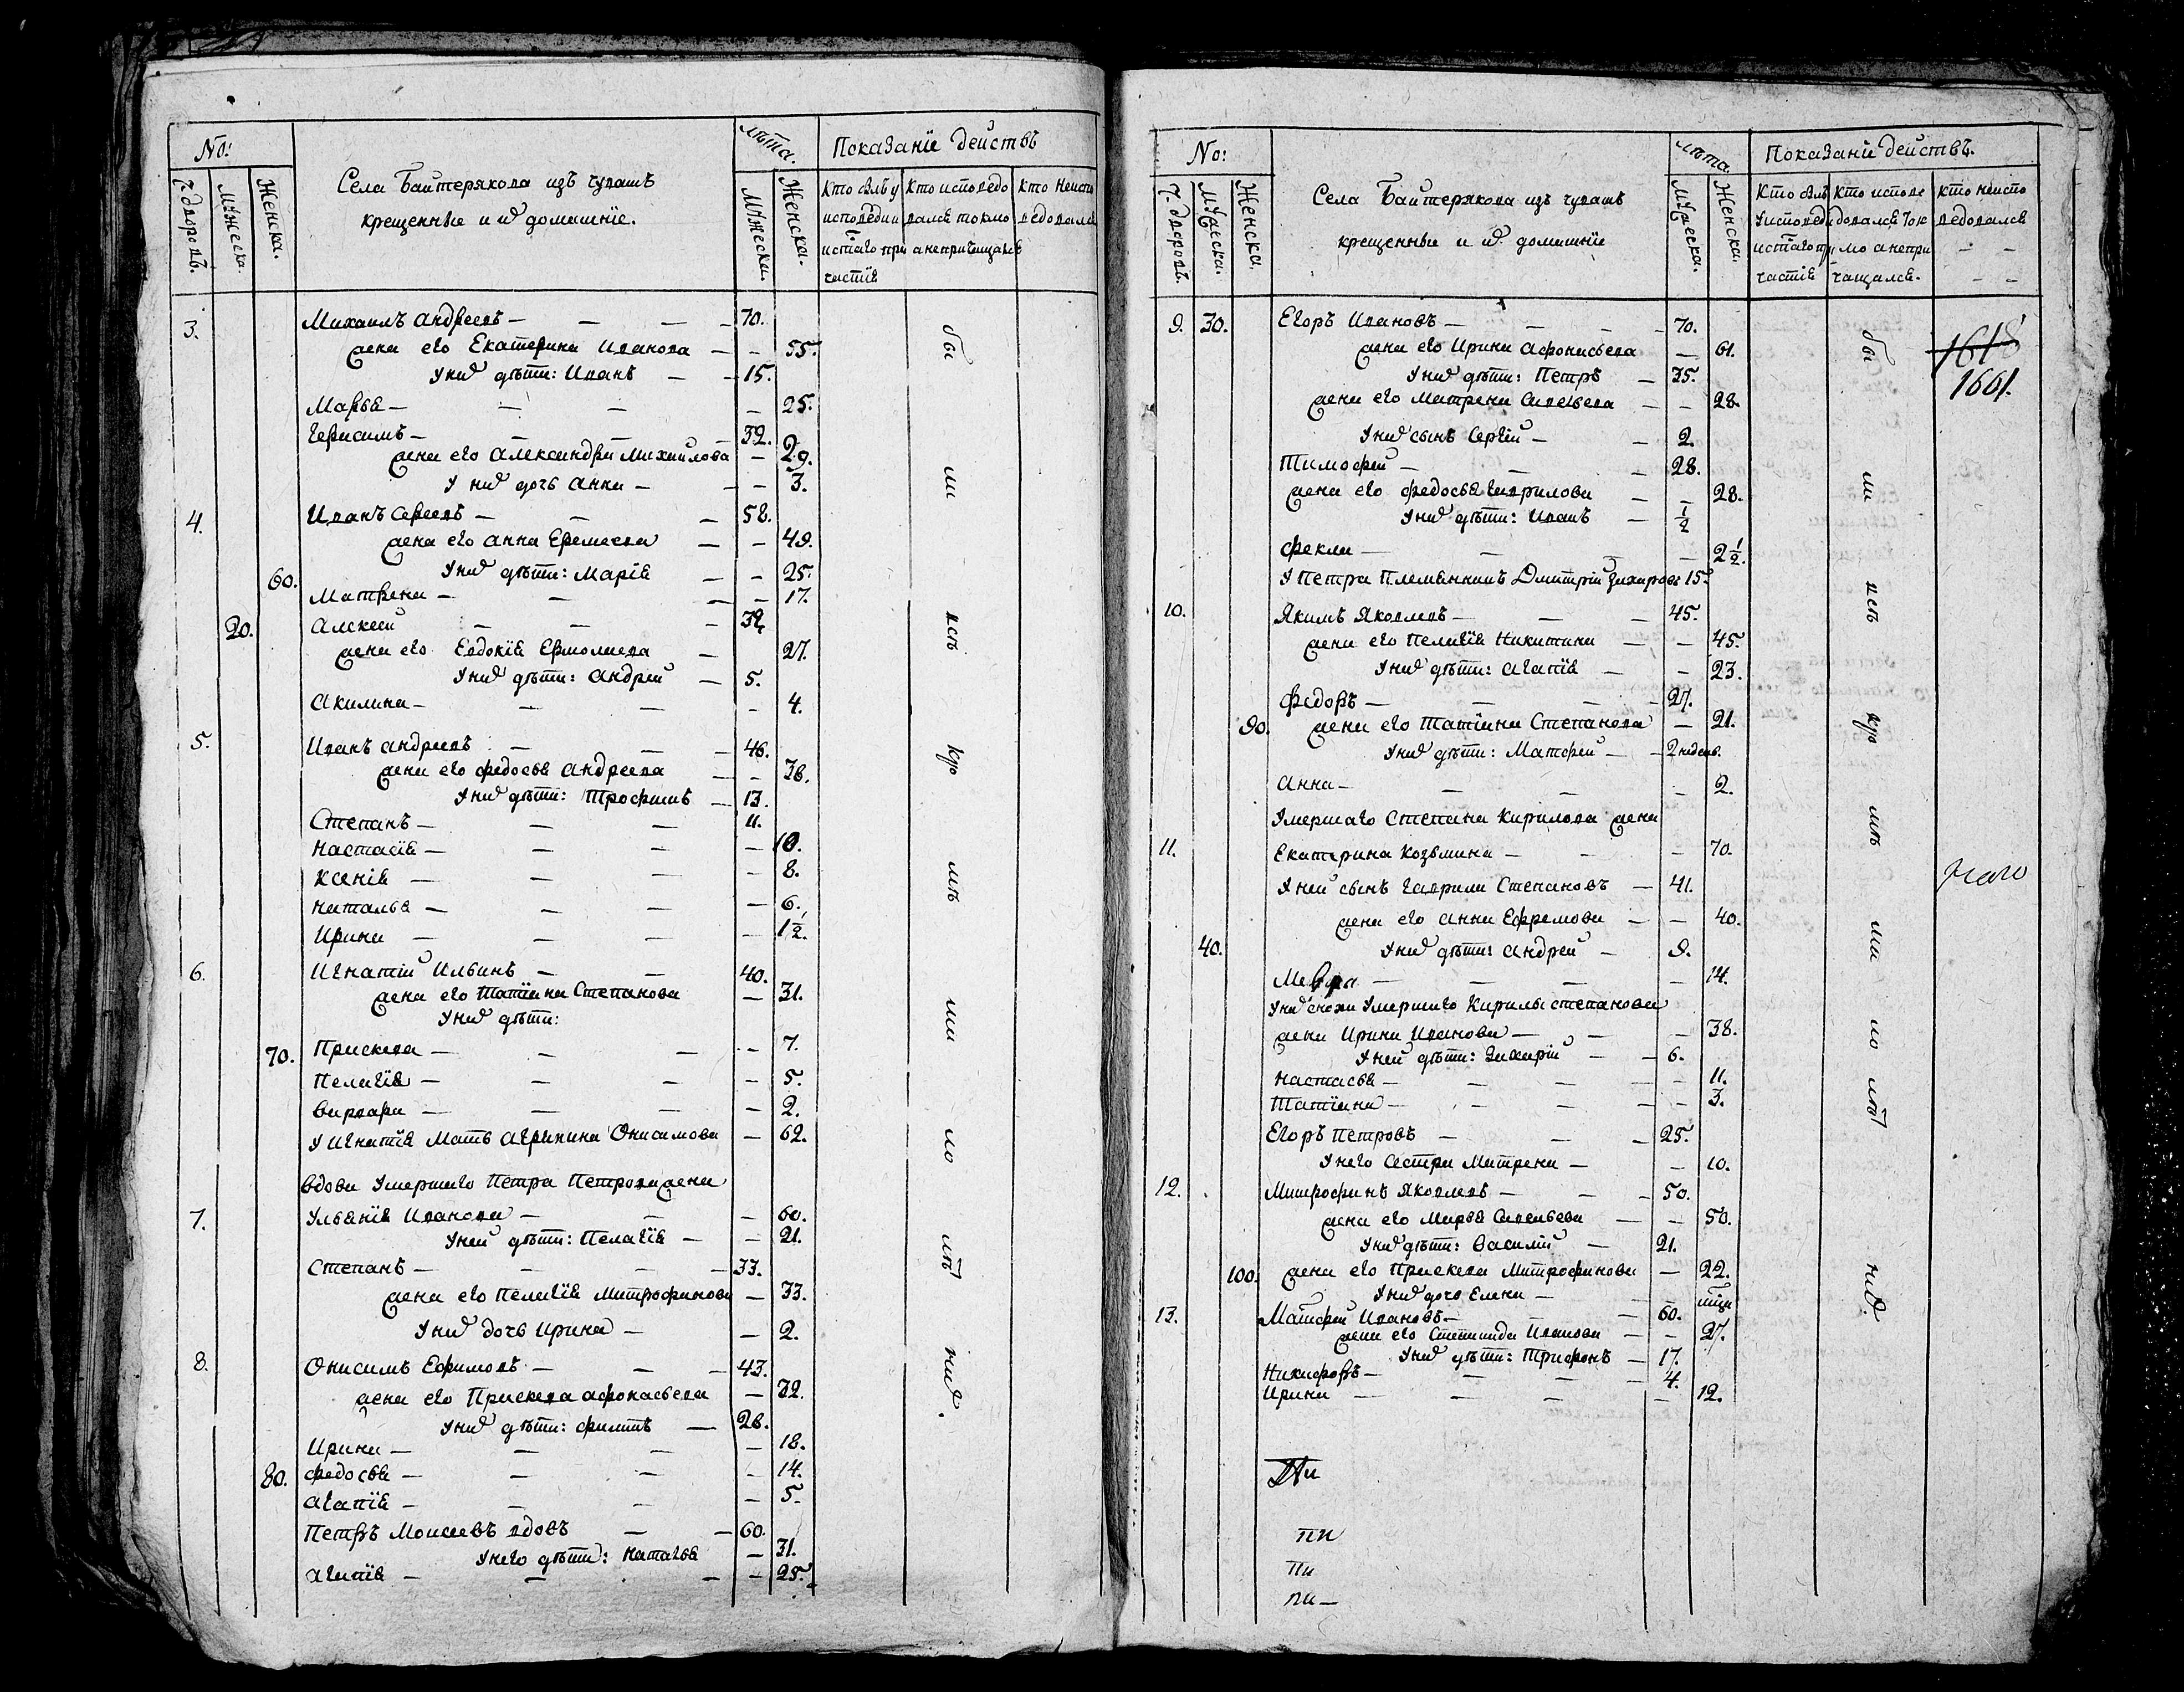 No:
Села Байтерякова изъ чувашъ
крещенные и ихъ домашние.
лѣта.
Показание действъ
Ч: дворовъ.
Мужеска.
Женска.
Мужеска.
Женска.
Кто былъ у исповеди и святаго причастия
Кто исповедовался токмо а непричащался
Кто неисповедовался
3. Михаилъ Андреевъ — — — 70.
жена его Екатерина Иванова — — 55.
У них дѣти: Иванъ — — 15.
Марья — — — — 25.
Герасимъ — — — — 32.
жена его Александра Михайлова — 29.
У них дочь Анна — — — 3.
4. Иванъ Сергеевъ — — — 58.
жена его Анна Еремеева — — 49.
60. У них дѣти: Мария — — 25.
Матрена — — — — 17.
20. Алексей — — — 32.
жена его Евдокия Ермолаева — 27.
У них дѣти: Андрей — 5.
Акилина — — — — 4.
5. Иванъ Андреевъ — — — 46.
жена его Федосья Андреева — — 36.
У них дѣти: Трофимъ — 13.
Степанъ — — — 11.
Настасия — — — — 10.
Ксения — — — — 8.
Наталья — — — — 6.
Ирина — — — — 1½.
6. Игнатий Ильинъ — — 40.
жена его Татиана Степанова — 31.
У них дѣти:
70. Прискева — — — — 7.
Пелагия — — — — 5.
Варвара — — — — 2.
У Игнатия мать Агрипина Онисимова — 62.
вдова умершаго Петра Петрова жена
7. Ульяния Иванова — — — 60.
У ней дѣти: Пелагия — — 21.
Степанъ — — — — 33.
жена его Пелагия Митрофанова — 33.
У них дочь Ирина — — 2.
8. Онисимъ Ефимовъ — — — 43.
жена его Прискева Афонасьева — 32.
У них дѣти: Филипъ — 26.
Ирина — — — — 18.
80. Федосья — — — — 14.
Агапия — — — — 5.
Петръ Моисеевъ вдовъ — — 60.
У него дѣти: Наталья — 31.
Агапия — — — — 25.
бы
ли
No:
Села Байтерякова изъ чувашъ
крещенные и ихъ домашние
лѣта
Показание действъ.
Ч: дворовъ.
Мужеска.
Женска.
Мужеска.
Женска.
Кто былъ у исповеди и святаго причастия
Кто исповедовался токмо а непричащался.
Кто неисповедовался
9. 30. Егоръ Ивановъ — — — 70.
жена его Ирина Афонасьева — 61.
У них дѣти: Петръ — 35.
жена его Матрена Савельева — — 28.
У них сынъ Сергий — — 2.
Тимофей — — — 28.
жена его Федосья Гаврилова — — 28.
У них дѣти: Иванъ — ½
Фекла — — — — 2½.
У Петра племянникъ Дмитрий Захаровъ 15.
10. Якимъ Яковлевъ — — — 45.
жена его Пелагия Никитина — — 45.
У них дѣти: Агапия — — 23.
Федоръ — — — — 27.
90. жена его Татиана Степанова — 21.
У них дѣти: Матфей — — 2 недель.
Анна — — — — 2.
Умершаго Степана Кирилова жена
11. Екатерина Козьмина — — — 70.
У ней сынъ Гаврила Степановъ — 41.
жена его Анна Ефремова — — 40.
40. У них дѣти: Андрей — 9.
Мавра — — — — 14.
У них сноха умершаго Кирилы Степанова
жена Ирина Иванова — — — 38.
У ней дѣти: Захарий — — 6.
Настасья — — — — 11.
Татиана — — — — 3.
Егоръ Петровъ — — — 25.
У него сестра Матрена — — 10.
12. Митрофанъ Яковлевъ — — — 50.
жена его Марья Савельева — — 50.
У них дѣти: Василий — 21.
100. жена его Прискева Митрофанова — 22.
У них дочь Елена —
13. Матфей Ивановъ — — 60.
жена его Степанида Иванова — — 27.
У них дѣти: Трифонъ — 17.
Никифоръ — — — — 4.
Ирина — — — — 12.
бы
ли
1618
1661.
пи
пи
пи —